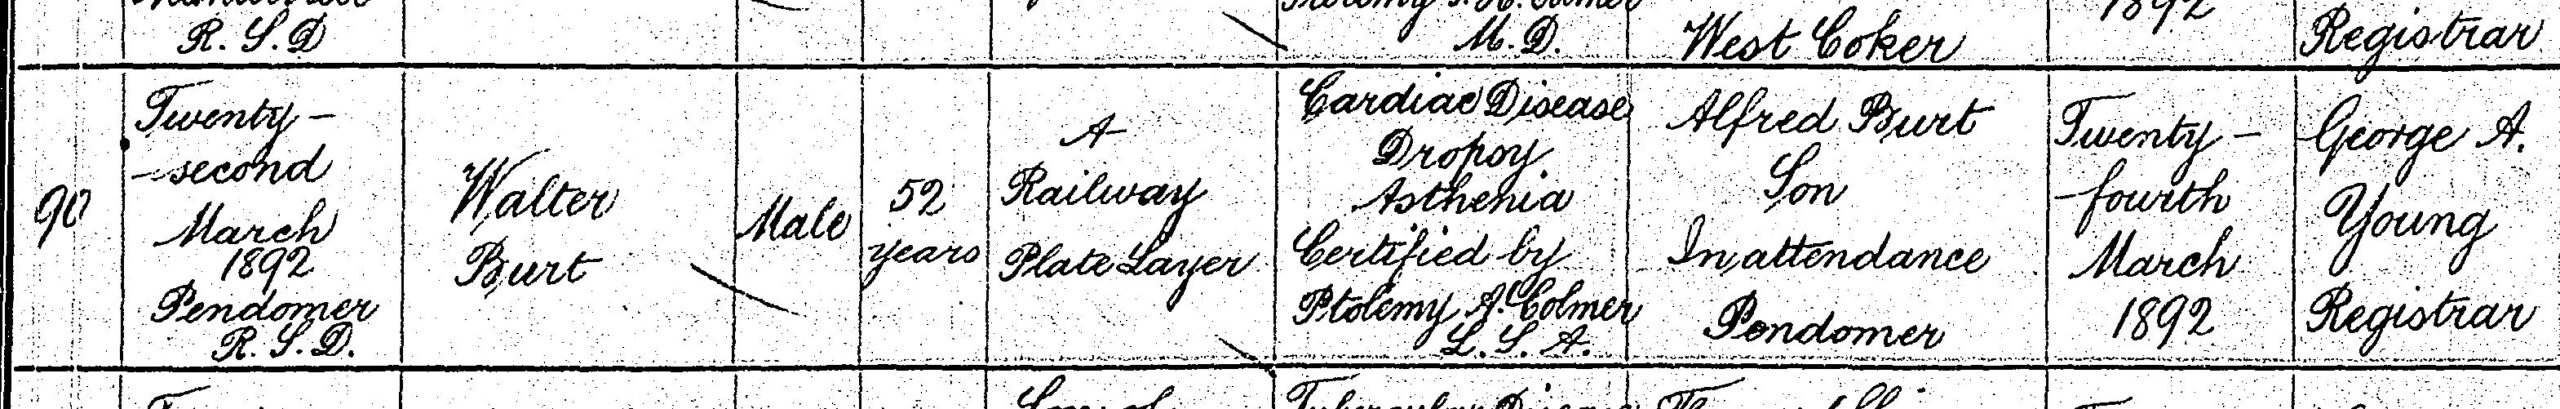 R. S. D
M. D.
West Coker
1892
Registrar
90
Twenty –
– second
March
1892
Pendomer
R. S. D.
Walter
Burt
Male
52
years
A
Railway
Plate Layer
Cardiac Disease
Dropsy
Asthenia
Certified by
Ptolemy A. Colmer
L. S. A.
Alfred Burt
Son
In attendance
Pendomer
Twenty –
– fourth
March
1892
George A.
Young
Registrar
Son of
Tubercular Disease